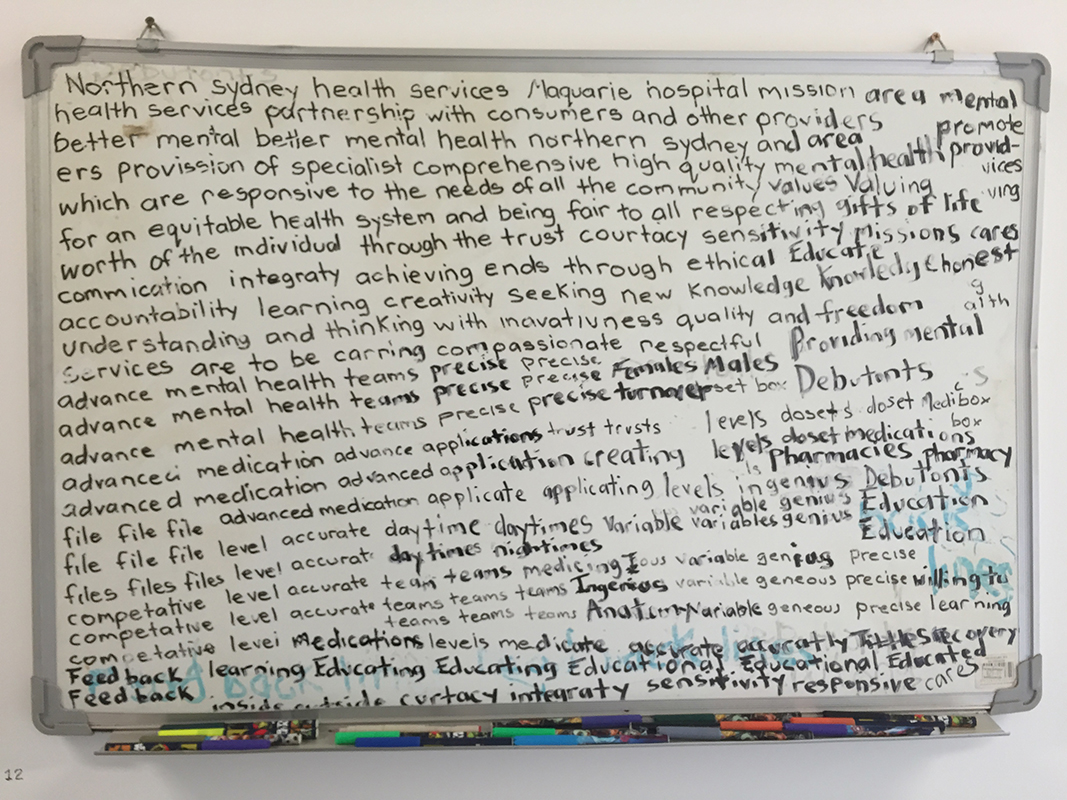 Northern sydney health services Maquarie hospital mission area mental
health services partnership with consumers and other providers promote
better mental better mental health northern sydney and area
ers provission of specialist comprehensive high quality mental health provid-
which are responsive to the needs of all the community values Valuing vices
for an equitable health system and being fair to all respecting gifts of life ving
worth of the individual through the trust courtacy sensitivity missions cares
commication integraty achieving ends through ethical Educate
accountability learning creativity seeking new knowledge Knowledge honest
understanding and thinking with inavativness quality and freedom
services are to be carring compassionate respectful Providing mental
advance mental health teams precise precise Females Males
advance mental health teams precise precise precise set box Debutonts
advance mental health teams precise precise levels dosets doset Medibox
advanced medication advance applications trust trusts levels doset medications box
advanced medication advanced application creating Pharmacies pharmacy
file file file advanced medication applicate applicating levels ingenius Debutonts
file file file level accurate daytime daytimes Variable variable genius Education
files files files level accurat daytimes nightimes variables genius Education
competative level accurate team teams medicing variable genius precise
competative level accurate teams teams teams Ingenious variable geneous precise willing to
competative level teams teams teams Variable geneous precise learning
Feedback Medications levels medicate accurate accuratly recovery
Feedback learning Educating Educating Educational Educational Educated
inside outside curtacy integraty sensitivity responsive cares
12